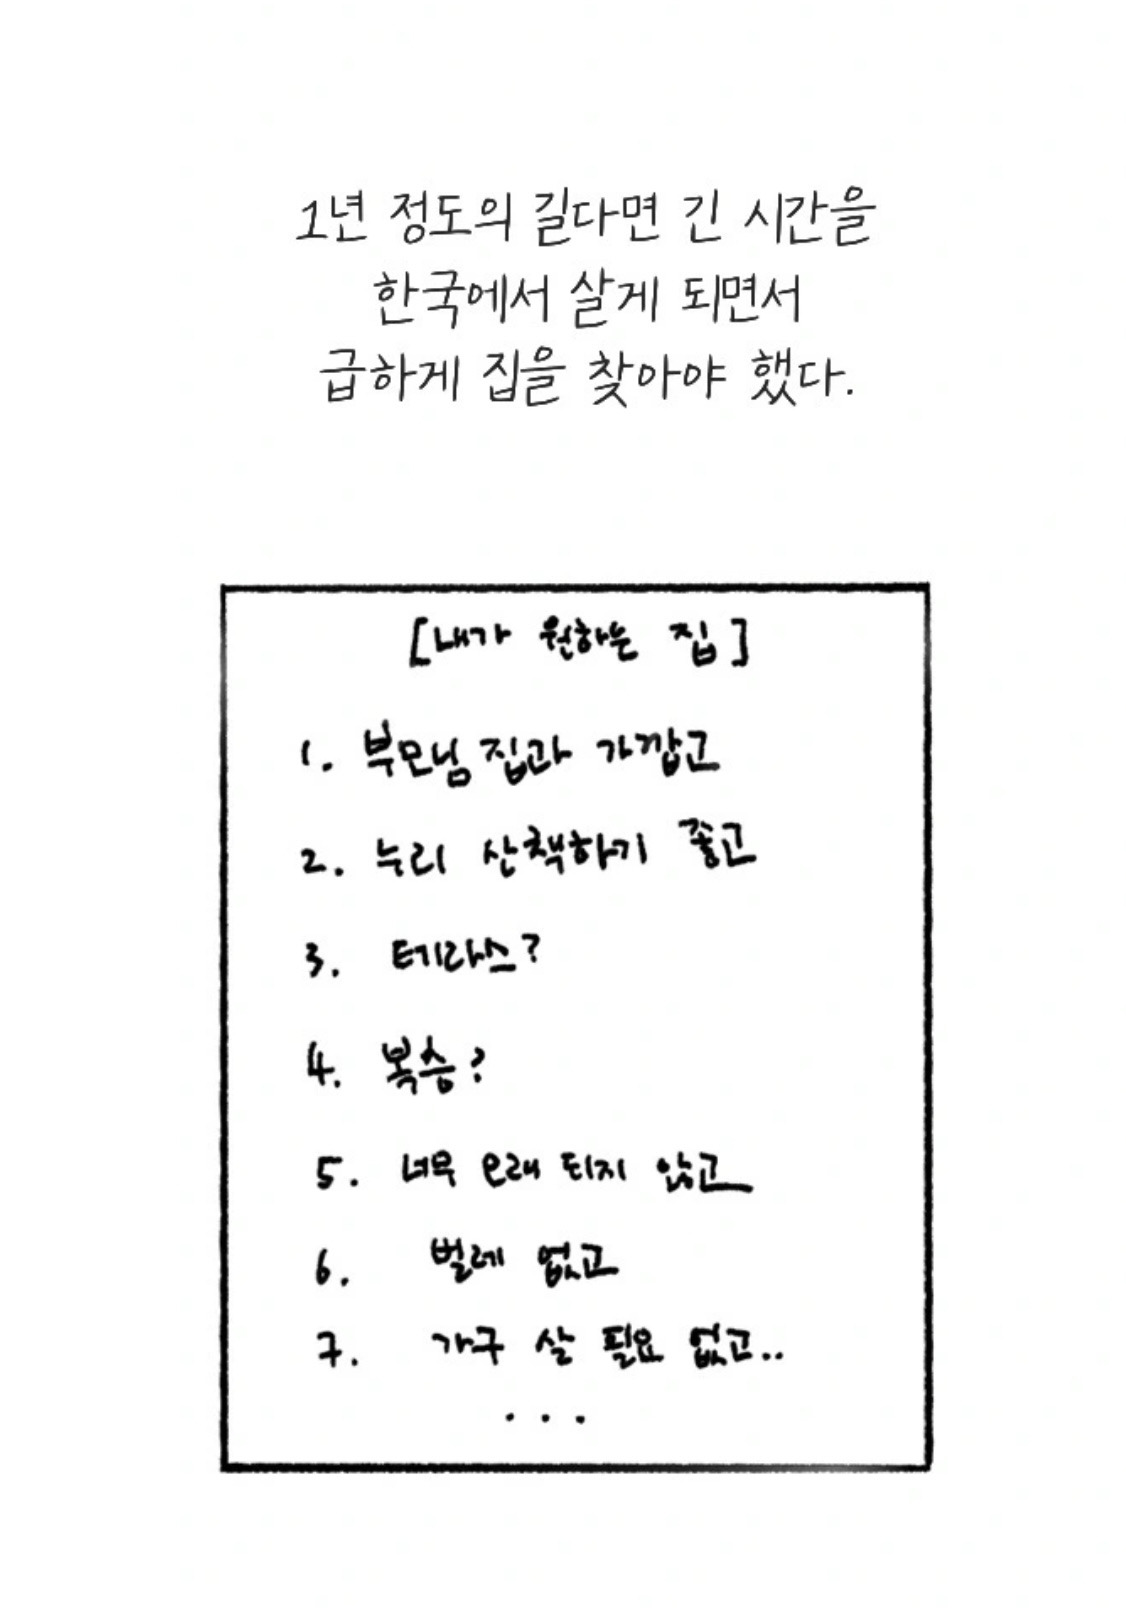 1년 정도의 길다면 긴 시간을
한국에서 살게 되면서
급하게 집을 찾아야 했다.
[내가 원하는 집]
1. 부모님 집과 가깝고
2. 누리 산책하기 좋고
3. 테라스?
4. 복층?
5. 너무 오래 되지 않고
6. 벌레 없고
7. 가구 살 필요 없고..
...